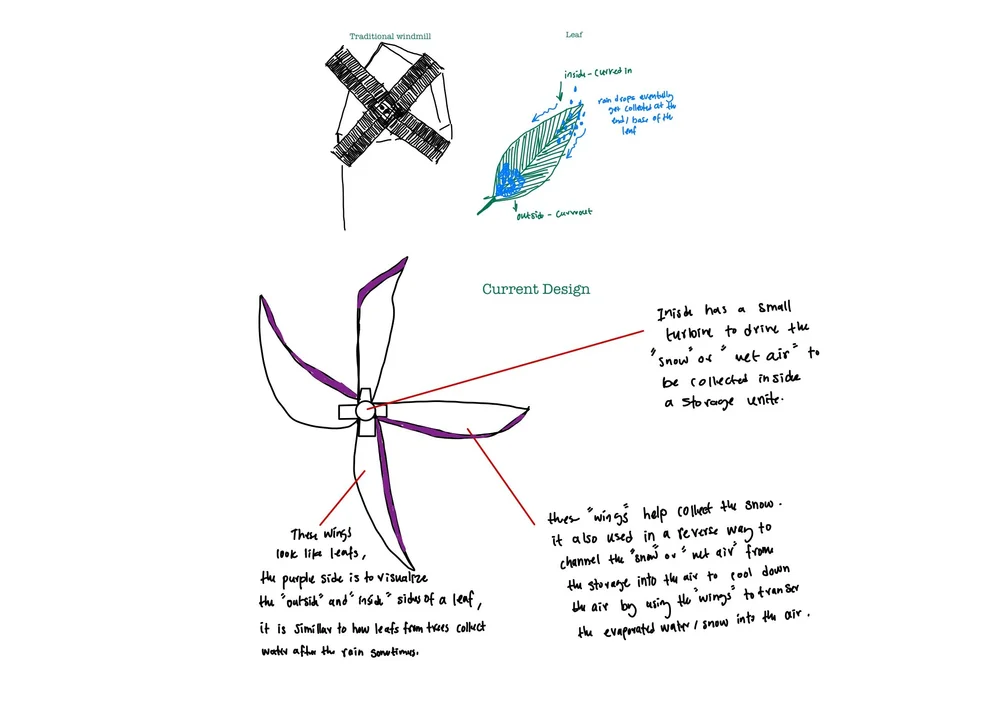 Traditional windmill
Leaf
inside - curved in
rain drops eventually
get collected at the
end / base of the
leaf
outside - curve out
Current Design
Inside has a small
turbine to drive the
"snow" or "wet air" to
be collected inside
a storage unite.
These wings
look like leafs,
the purple side is to visualize
the "outside" and "inside" sides of a leaf,
it is similar to how leafs from trees collect
water after the rain sometimes.
thes "wings" help collect the snow.
it also used in a reverse way to
channel the "snow" or "wet air" from
the storage into the air to cool down
the air by using the "wings" to transer
the evaporated water / snow into the air.